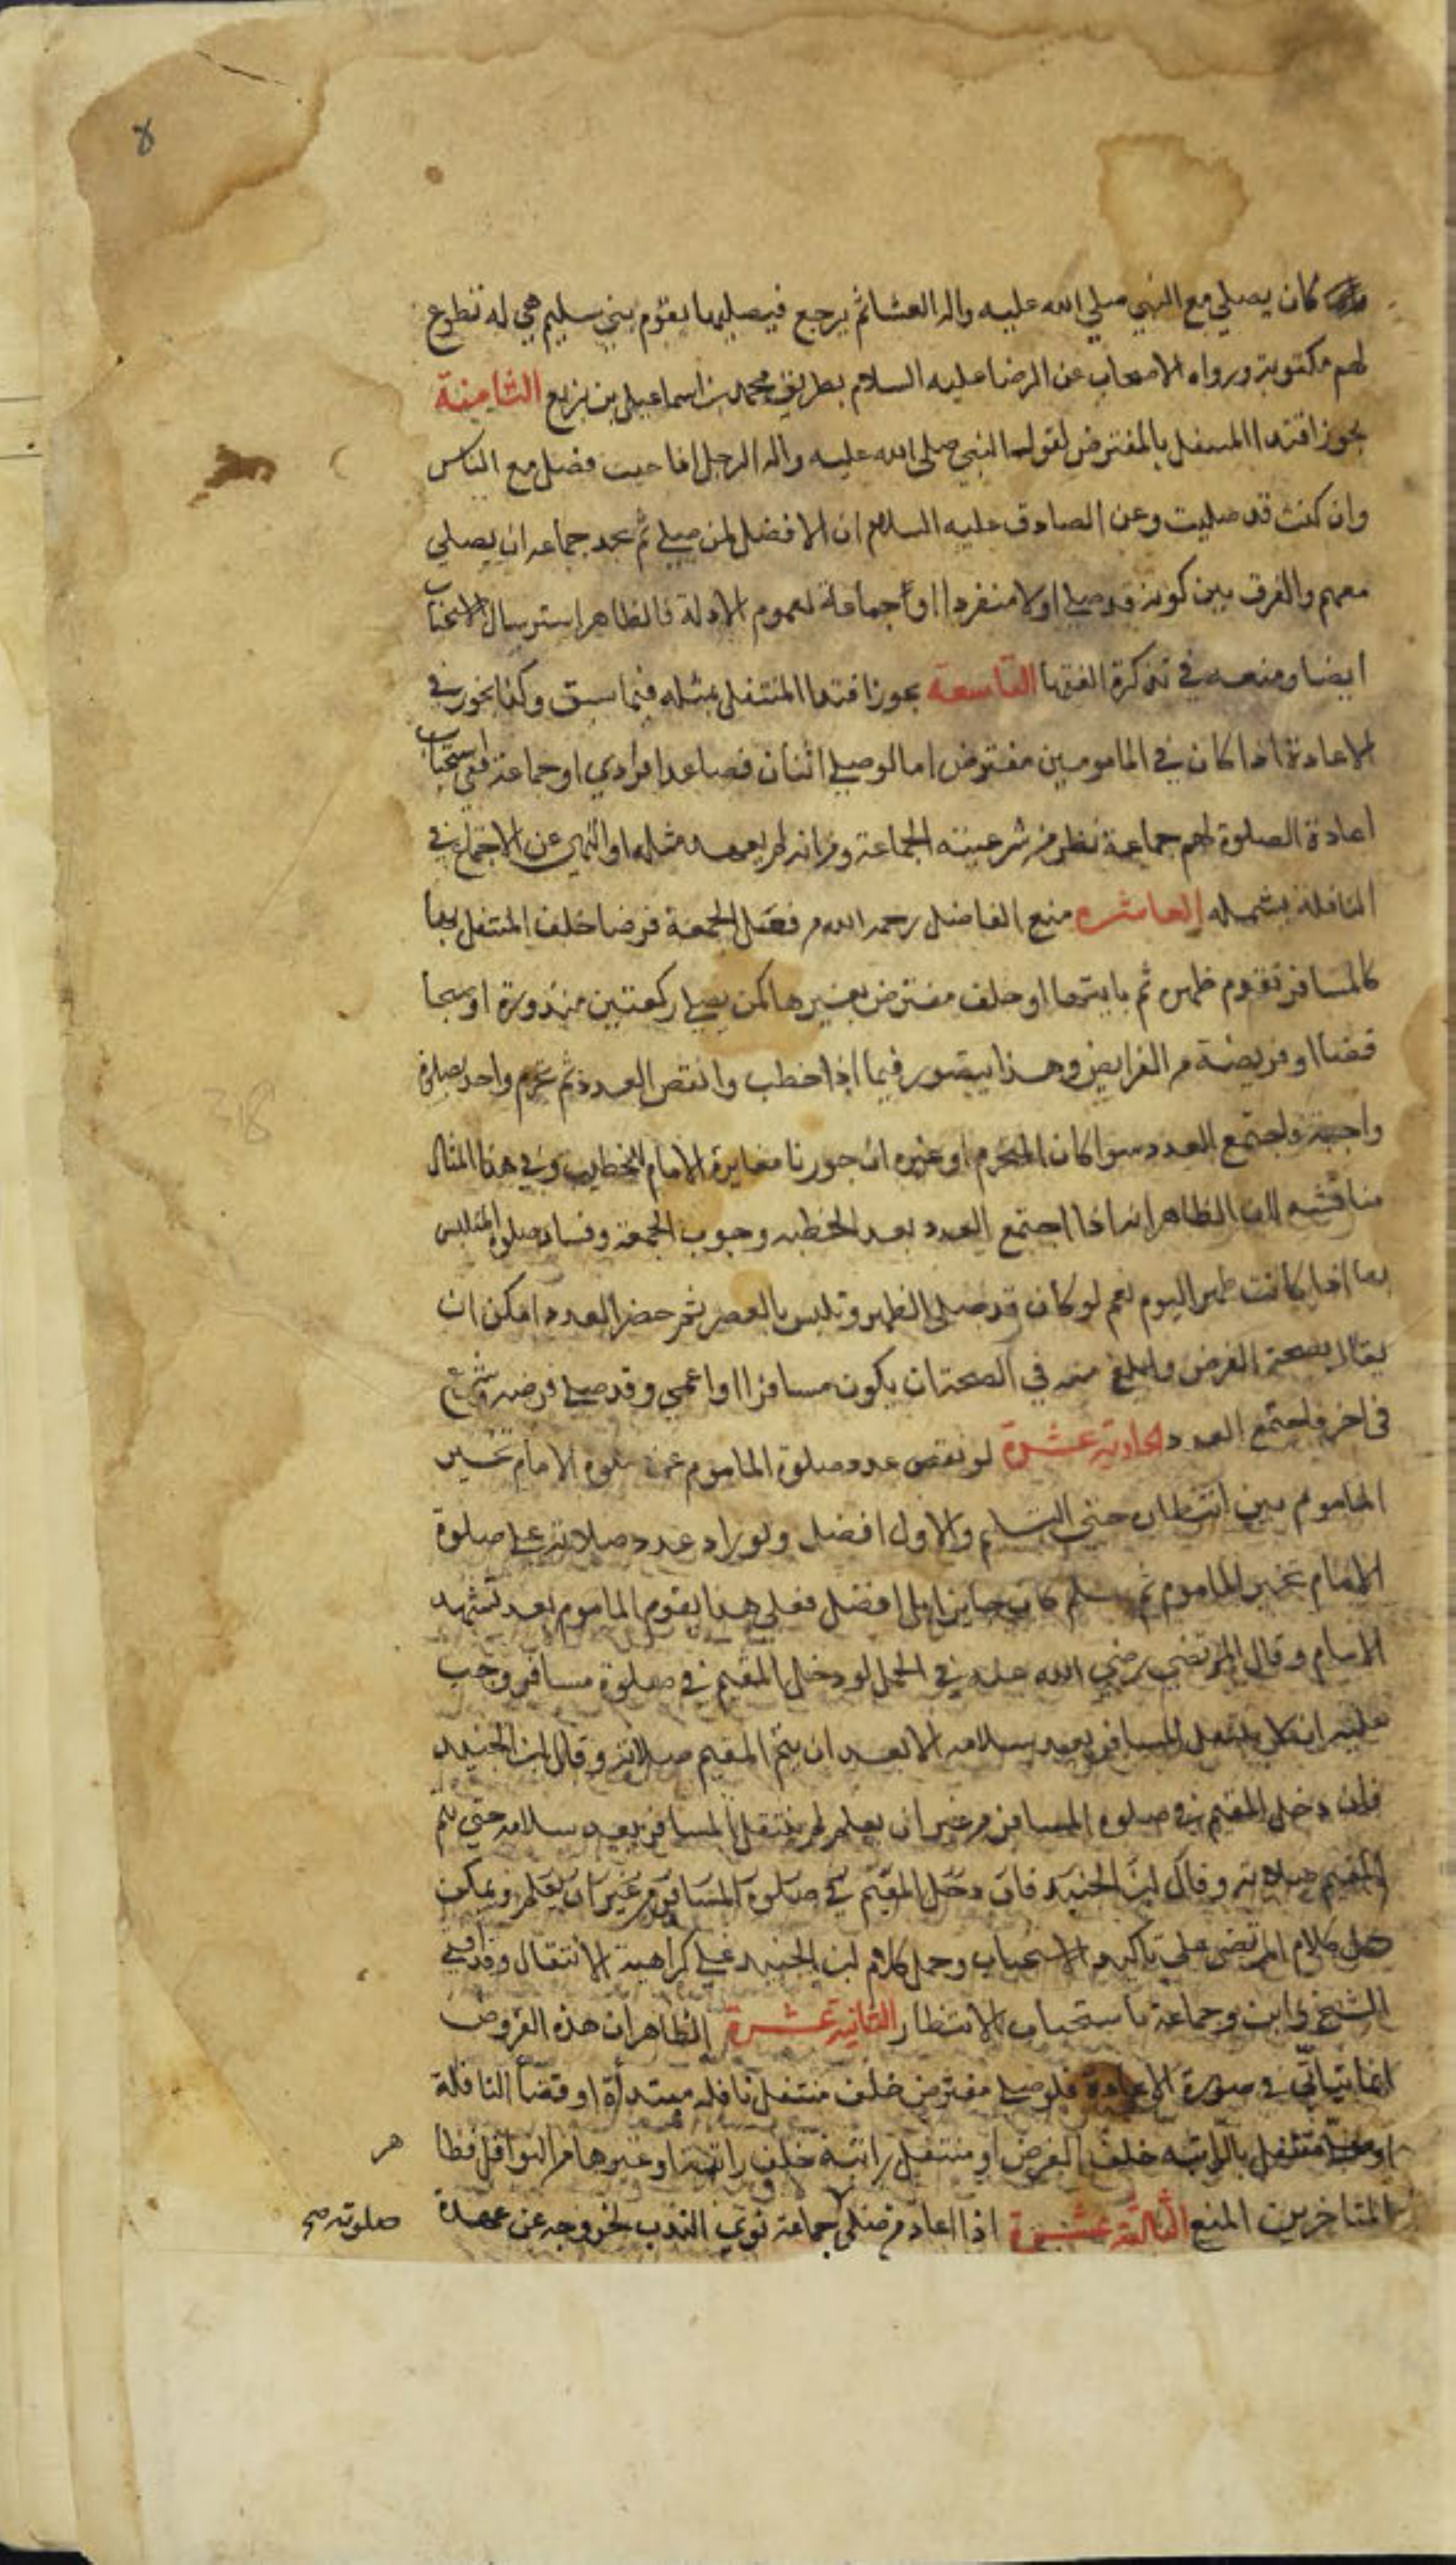 كان يصلي مع النبي صلي الله عليه واله العشا ثم يرجع فيصليها بقوم بني سليم هي له تطوع
لهم مكتوبة ورواه الاصحاب عن الرضا عليه السلام بطريق محمد بن اسماعيل بن بزيع الثامنة
يجوز اقتدا المتنفل بالمفترض لقول النبي صلي الله عليه واله الرجل اذا جيت فصل مع الناس
وان كنت قد صليت وعن الصادق عليه السلام ان الافضل لمن صلي ثم يجد جماعه ان يصلي
معهم والفرق بين كونه قد صلي اولا منفردا او جماعة لعموم الادلة فالظاهر استرسال الاستحباب
ايضا ومنعه في تذكرة الفقها التاسعة يجوز اقتدا المتنفل بمثله فيما سبق وكذا يجوز في
الاعادة اذا كان في المامومين مفترض اما لو صلي اثنان فصاعدا فرادي او جماعة ففي استحباب
اعادة الصلوة لهم جماعة نظر من شرعيته الجماعة ومن انه لم يعهد مثله او النهي عن الاجتماع في
النافلة يشمله العاشرة منع الفاضل رحمه الله من فعل الجمعة فرضا خلف المتنفل بها
كالمسافر تقدم ظهره ثم ياتي بها او خلف مفترض بغيرها كمن يصلي ركعتين منذورة او صبحا
قضا او فريضة من الفرايض وهذا يتصور فيما اذا خطب وانفض العدد ثم تحرم واحد بصلوة
واجبة فاجتمع العدد سوا كان المتحرم او غيره ان جوزنا مغايرة الامام الخطيب وفي هذا المثال
مناقشة لان الظاهر انه اذا اجتمع العدد بعد الخطبه وجوب الجمعة وفساد صلوة المتلبس
بها اذا كانت ظهر اليوم نعم لو كان قد صلي الظهر وتلبس بالعصر ثم حضر العدد امكن ان
يقال بصحة الفرض وابلغ منه في الصحة ان يكون مسافرا او اعمي وقد صلي فرضه وشرع
في اخر فاجتمع العدد الحادية عشرة لو نقص عدد صلوة الماموم عن صلوة الامام تخير
الماموم بين انتظاره حتي التسليم والاول افضل ولو زاد عدد صلاته علي صلوة
الامام تخير الماموم ثم يسلم كان جايزا بل افضل فعلي هذا يقوم الماموم بعد تشهد
الامام وقال المرتضي رضي الله عنه في الجمل لو دخل المقيم في صلوة مسافر وجب
عليه ان لا ينتقل المسافر بعد سلامه الا بعد ان يتم المقيم صلاته وقال ابن الجنيد
فان دخل المقيم في صلوة المسافر من غير ان يعلم لم ينتقل المسافر بعد سلامه حتي يتم
المقيم صلاته وقال ابن الجنيد فان دخل المقيم في صلوة المسافر من غير ان يعلم ويمكن
حمل كلام المرتضي علي تاكيد الاستحباب وحمل كلام ابن الجنيد علي كراهية الانتقال وقد افتي
الشيخ وابن وجماعة باستحباب الانتظار الثانية عشرة الظاهر ان هذه الفروض
انما يتاتي في صورة الاعادة فلو صلي مفترض خلف متنفل نافله مبتدأة او قضا النافلة
او متنفل بالراتبه خلف الفرض او متنفل راتبة خلف راتبة او غيرها من النوافل فظا
هر
المتاخرين المنع الثالثة عشرة اذا اعاد من صلي جماعة نوي الندب لخروجه عن عهدة
صلوته صح